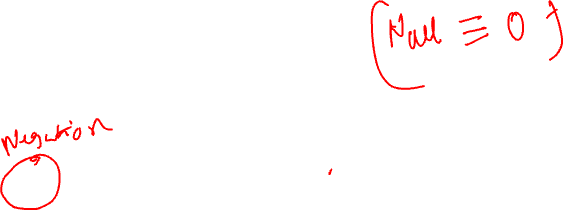 (Null ≡ 0)
Negation